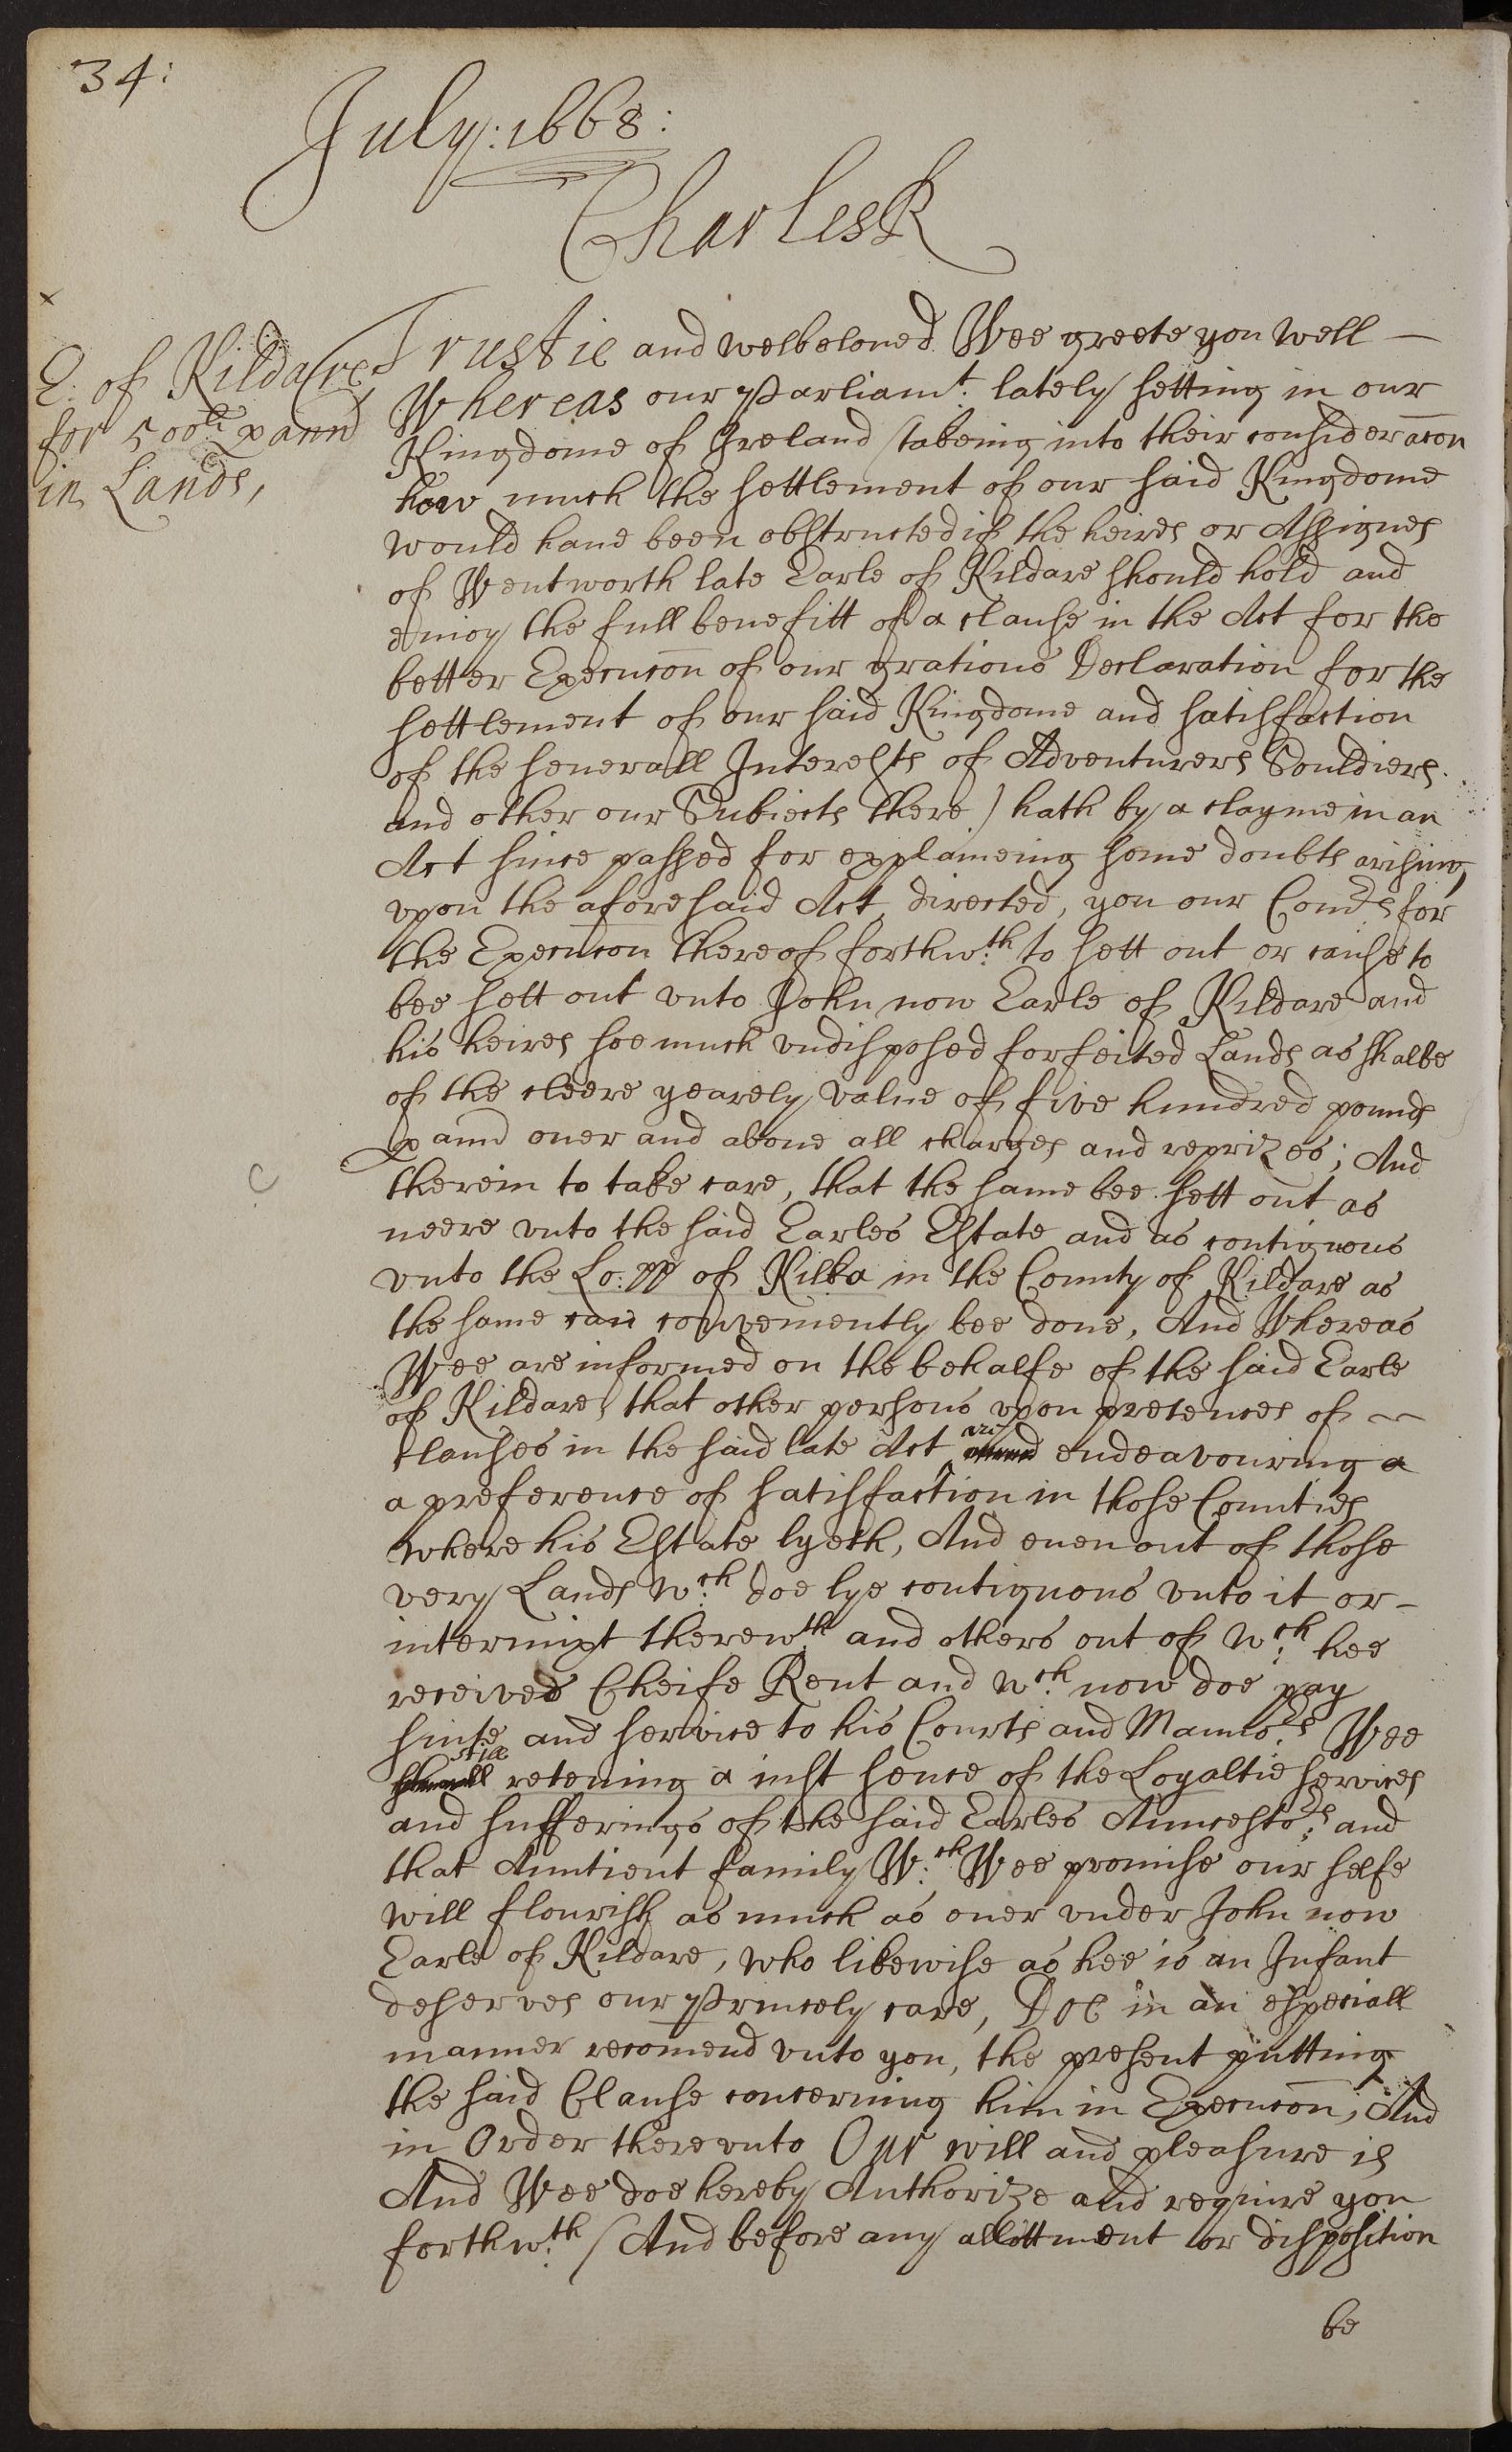 34:
July: 1668:
Charles R
E. of Kildare
for 500li p ann
in Lands,
Trustie and welbeloued Wee greete you well —
Whereas our Parliamt. lately sitting in our
Kingdome of Ireland (takeing into their consideracon
how much the settlement of our said Kingdome
would haue been obstructed if the heires or Assignes
of Wentworth late Earle of Kildare should hold and
enioy the full benefitt of a clause in the Act for the
better Execucon of our gratious Declaration for the
settlement of our said Kingdome and satisfaction
of the seuerall Interests of Adventurers Souldiers
and other our Subiects there) hath by a clayme in an
Act since passed for explaineing some doubts arising
vpon the aforesaid Act, directed, you our Comrs for
the Execucon thereof forthwth. to sett out or cause to
bee sett out vnto John now Earle of Kildare and
his heires soe much vndisposed forfeited Lands as shalbe
of the cleere yearely value of five hundred pounds
p ann ouer and aboue all charges and reprizes; And
therein to take care, that the same bee sett out as
neere vnto the said Earles Estate and as contiguous
vnto the Lo:pp of Kilka in the County of Kildare as
the same can conveniently bee done, And Whereas
Wee are informed on the behalfe of the said Earle
of Kildare, that other persons vpon pretences of
clauses in the said late Act are endeavouring a
a preference of satisfaction in those Counties
where his Estate lyeth, And euen out of those
very Lands wch. doe lye contiguous vnto it or -
intermixt therewth. and others out of wch. hee
received Cheife Rent and wch. now doe pay
suite and service to his Courts and Manno.rs Wee
still reteining a iust sence of the Loyaltie services
and sufferings of the said Earles Auncesto.rs and
that Auntient family Wch. Wee promise our selfe
will flourish as much as ouer vnder John now
Earle of Kildare, who likewise as hee is an Infant
deserves our Princely care, Doe in an especiall
manner recomend vnto you, the present putting
the said Clause concerning him in Execucon, And
in Order therevnto Our will and pleasure is
And Wee doe hereby Authorize and require you
forthwth. (And before any allottment or disposition
be